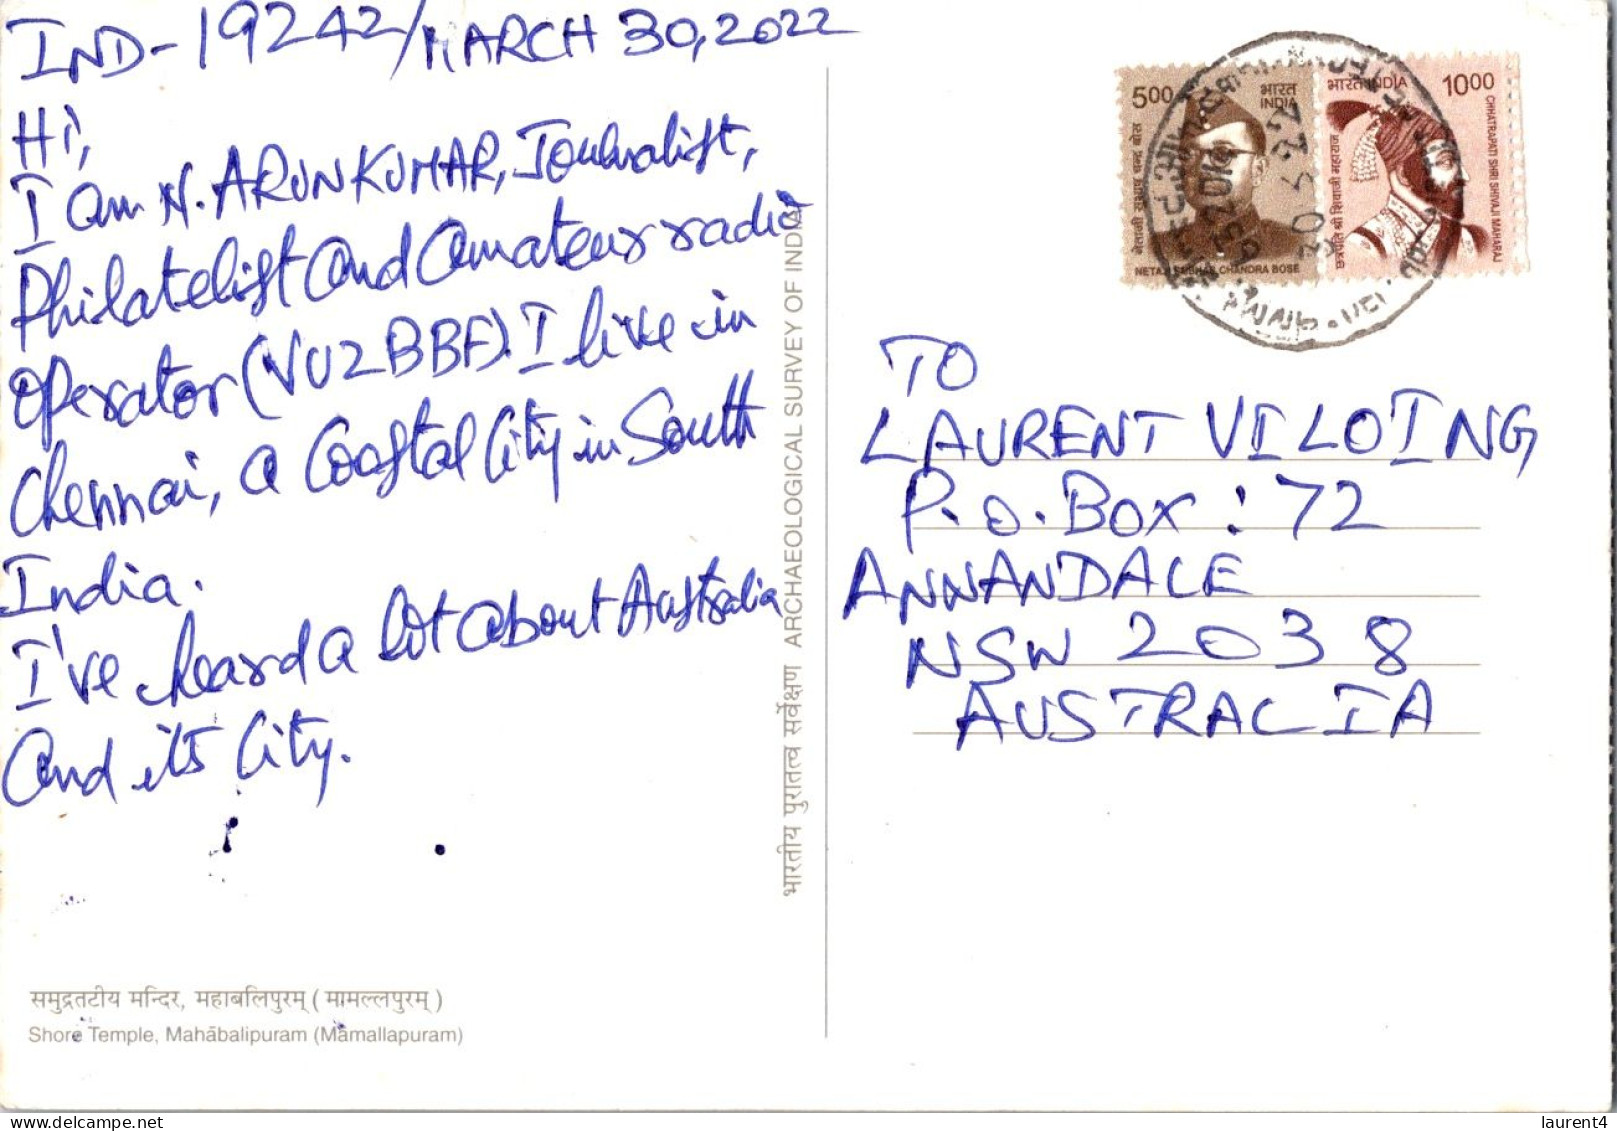 IND-19242/MARCH 30, 2022
Hi,
I am N. ARUNKUMAR, Journalist,
Philatelist and amateur radio
operator (VU2BBF). I live in
Chennai, a Coastal City in South
India.
I've heard a lot about Australia
and its City.
समुद्रतटीय मन्दिर, महाबलिपुरम् ( मामल्लपुरम् )
Shore Temple, Mahābalipuram (Māmallapuram)
भारतीय पुरातत्त्व सर्वेक्षण ARCHAEOLOGICAL SURVEY OF INDIA
500 भारत
INDIA
नेताजी सुभाष चन्द्र बोस
NETAJI SUBHAS CHANDRA BOSE
भारत INDIA 1000
छत्रपति श्री शिवाजी महाराज
CHHATRAPATI SHRI SHIVAJI MAHARAJ
TO
LAURENT VILOING
P.O. BOX : 72
ANNANDALE
NSW 2038
AUSTRALIA
DELCAMPE.NET
laurent4